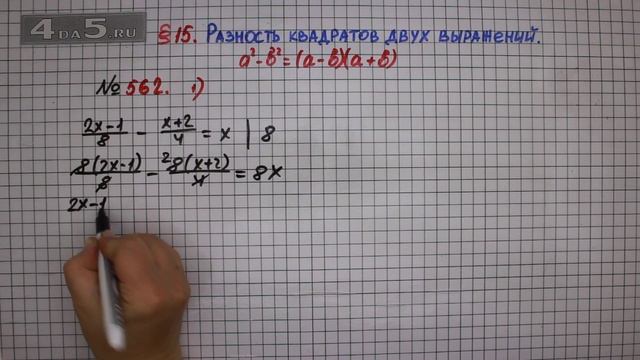 4DA5.RU
§ 15. Разность квадратов двух выражений.
a² - b² = (a - b)(a + b)
№ 562. 1)
(2x-1)/8 - (x+2)/4 = x | 8
8(2x-1)/8 - ²8(x+2)/4 = 8x
2x-1